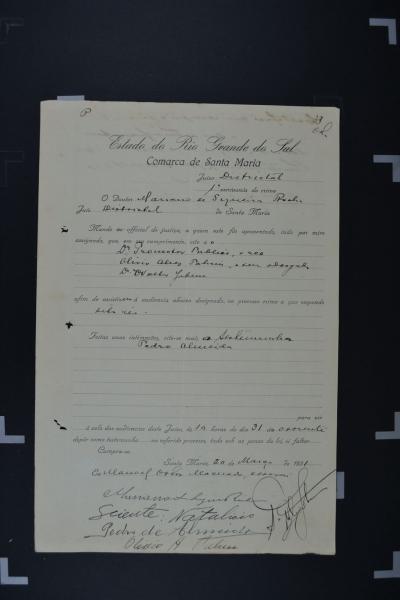 P
Estado do Rio Grande do Sul
Comarca de Santa Maria
Juizo Districtal
1º cartorio do crime
O Doutor Mariano de Siqueira Rocha
Juiz Districtal de Santa Maria
Mando ao official de justiça, a quem este fôr apresentado, indo por mim
assignado, que em seu cumprimento, cite a o
Dr. Promotor Publico, o réo
Olivio Alves Pahim, e seu advogado
Dr. Walter Jobim
afim de assistirem á audiencia abaixo designada, no processo crime a que responde
dito réo.
Feitas essas intimações, cite-se mais, a testemunha
Pedro Almeida
para vir
á sala das audiencias deste Juizo, ás 14 horas do dia 31 do corrente
depôr como testemunha no referido processo, tudo sob as penas da lei, si faltar.
Cumpra-se.
Santa Maria, 20 de Março de 1931
Eu Manoel Machado, escrivão
Sciente: Natalicio
Pedro de Almeida
Olivio A. Pahim